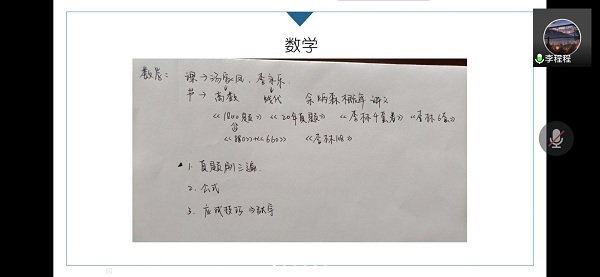 数学
李程程
数学: 课→汤家凤、李永乐
书→ 高数 线代 余炳森概率讲义
《1800题》《20年真题》《李林4套卷》《李林6套》
《880》+《660》 《李林108》
1. 真题刷三遍.
2. 公式
3. 应试技巧